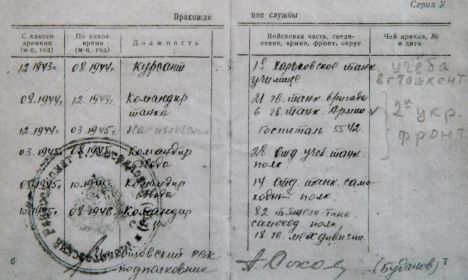 Серия У
Прохождение службы
С какого времени (м-ц, год)
По какое время (м-ц, год)
Должность
Войсковая часть, соединение, армия, фронт, округ
Чей приказ, № и дата
12.1943г. 08.1944г. Курсант 1е Харьковское танк. училище учеба в г. Ташкент
08.1944г. 12.1944г. Командир танка 21 гв. танк. бригада 6 гв. танк. Армии 2й укр. фронт
12.1944г. 03.1945г. На излечении госпиталь 5542
03.1945г. 08.1945г. Командир 28 отд. учеб. танк. полк
Командир 14 отд. танк. самоходный полк
Командир 82 тяжело-танк. самоход. полк 18 гв. мехдивизии
РВК
подполковник
(Буданов)
6
7